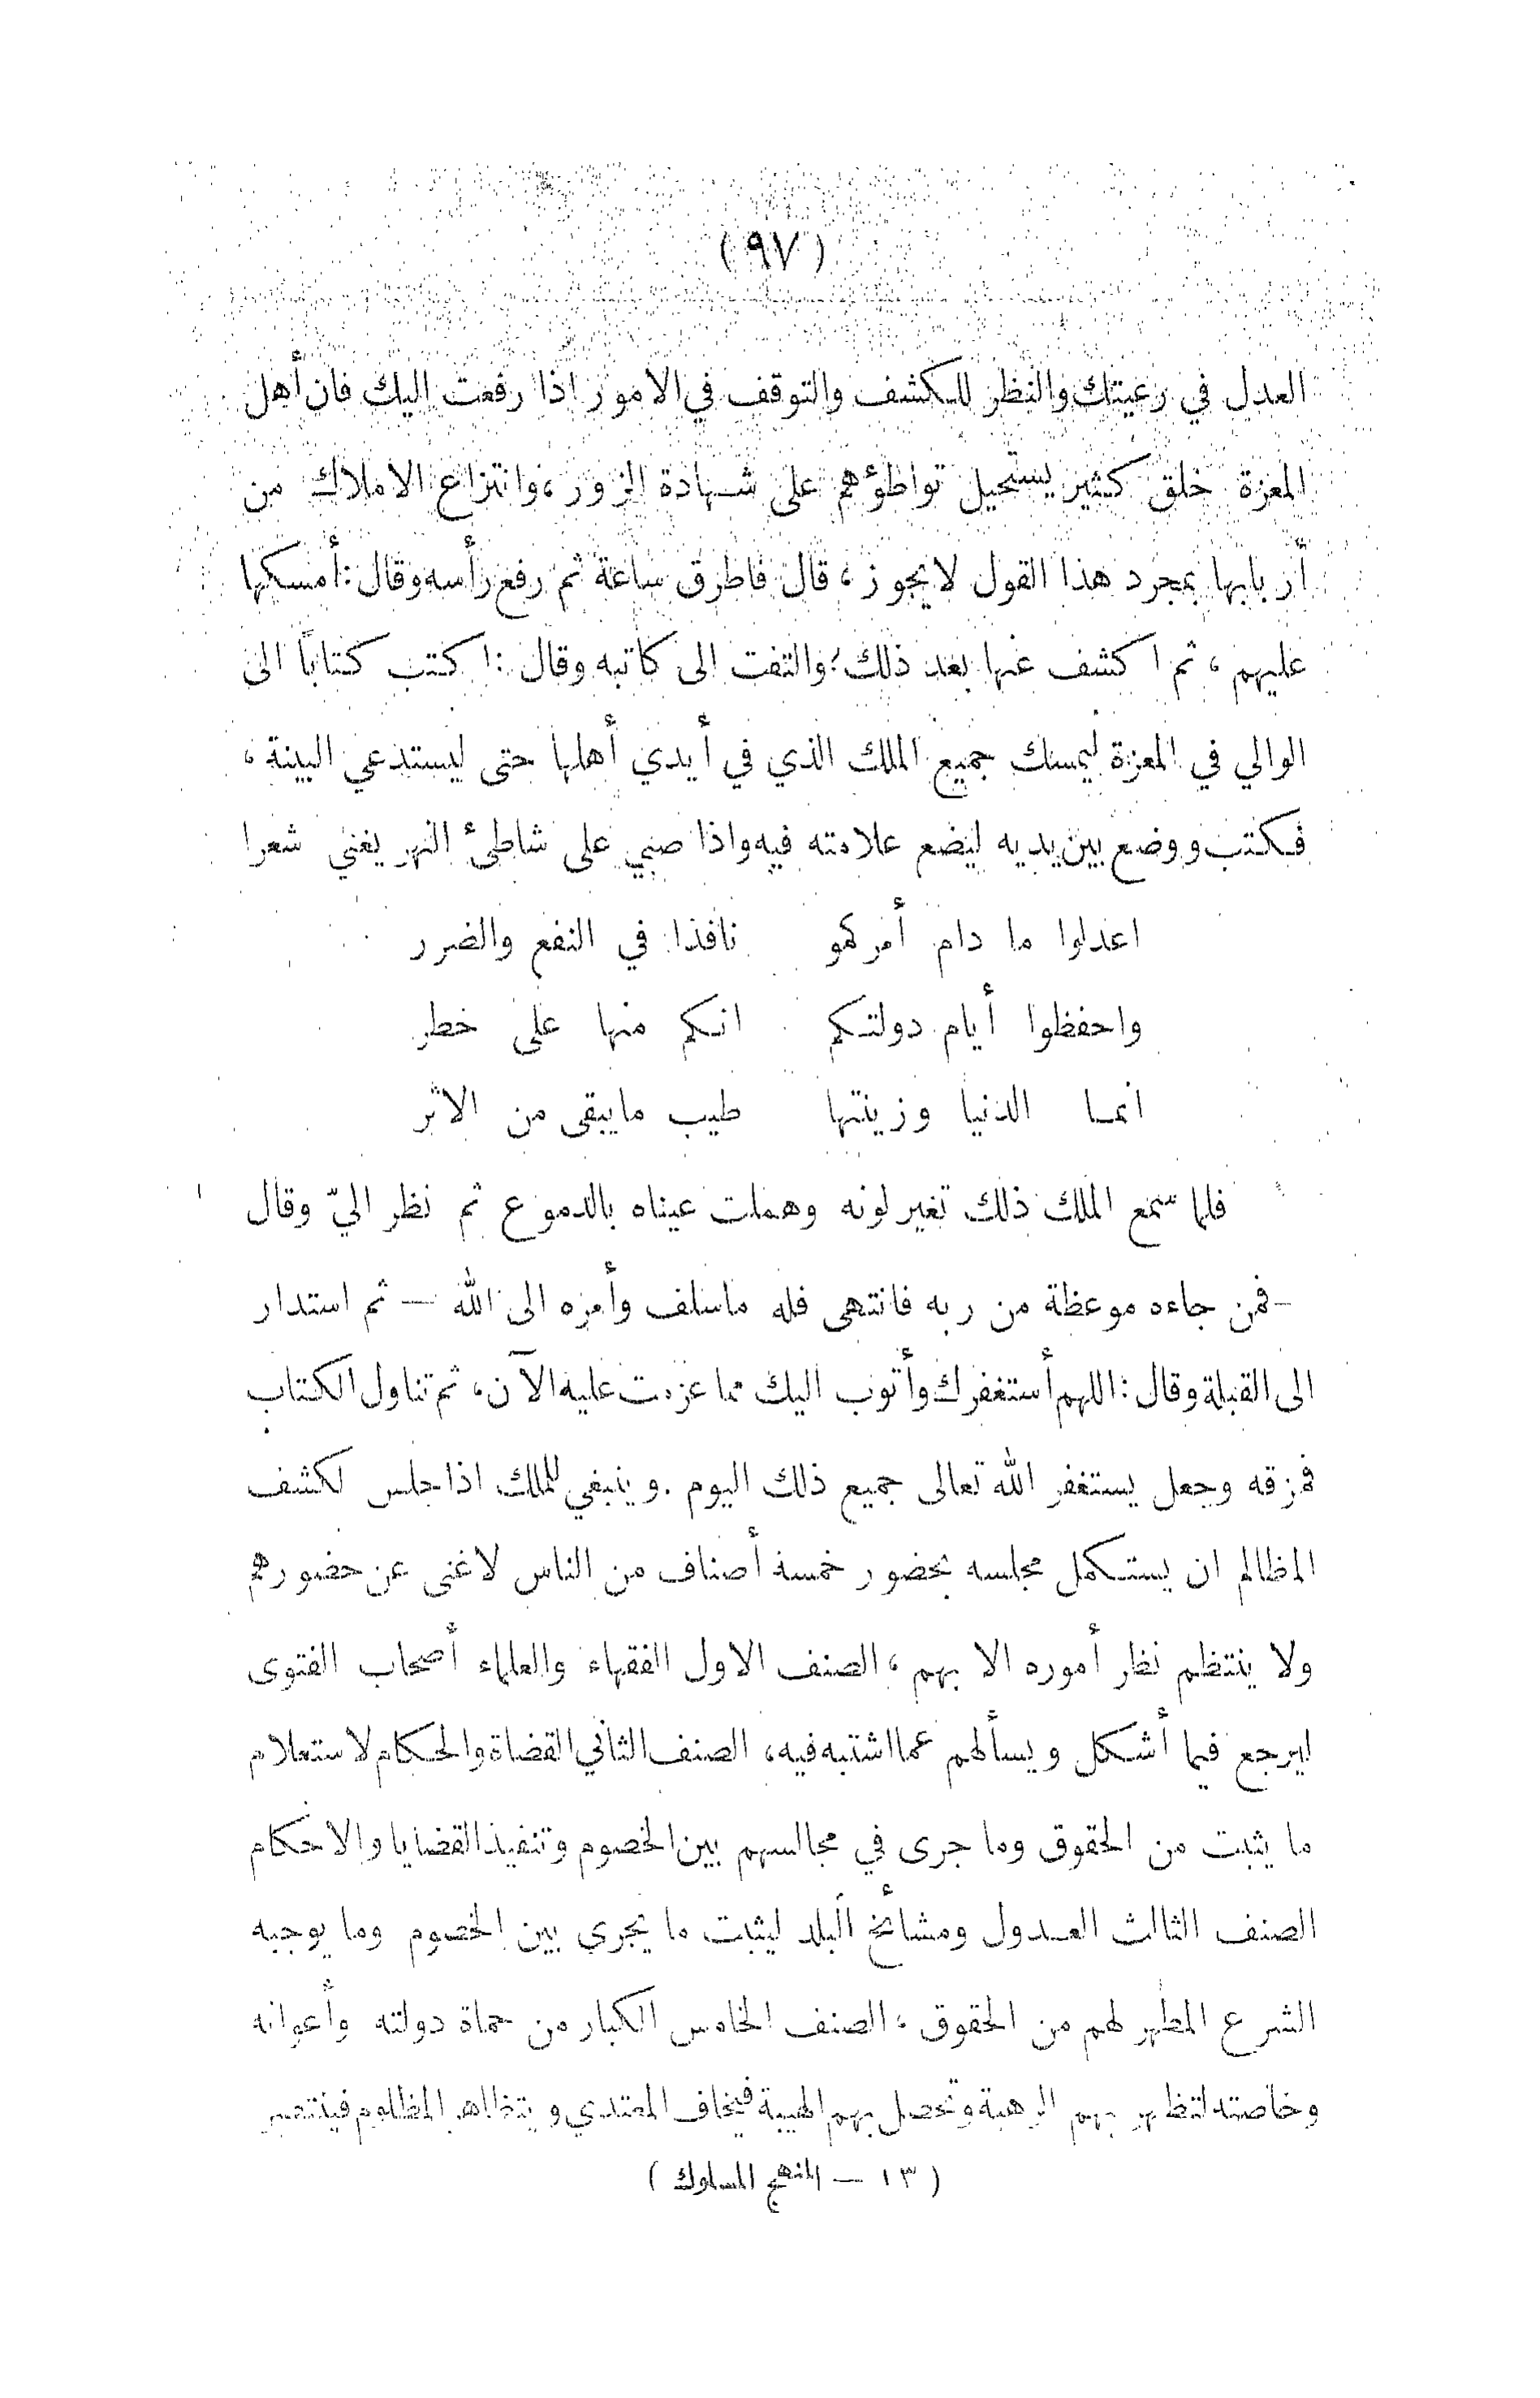 (٩٧)
العدل في رعيتك والنظر للكشف والتوقف في الامور اذا رفعت اليك فان أهل
المعزة خلق كثير يستحيل تواطؤهم على شهادة الزور ، وانتزاع الاملاك من
أربابها بمجرد هذا القول لايجوز ، قال فاطرق ساعة ثم رفع رأسه وقال : أمسكها
عليهم ، ثم اكشف عنها بعد ذلك ؛ والتفت الى كاتبه وقال : اكتب كتاباً الى
الوالي في المعزة ليمسك جميع الملك الذي في أيدي أهلها حتى ليستدعي البينة ،
فكتب ووضع بين يديه ليضع علامته فيه واذا صبي على شاطئ النهر يغني شعرا
اعدلوا ما دام أمركمو نافذا في النفع والضرر
واحفظوا أيام دولتكم انكم منها على خطر
انما الدنيا وزينتها طيب مايبقى من الاثر
فلما سمع الملك ذلك تغير لونه وهملت عيناه بالدموع ثم نظر اليّ وقال
– فمن جاءه موعظة من ربه فانتهى فله ماسلف وأمره الى الله – ثم استدار
الى القبلة وقال : اللهم أستغفرك وأتوب اليك مما عزمت عليه الآن ، ثم تناول الكتاب
فمزقه وجعل يستغفر الله تعالى جميع ذلك اليوم . وينبغي للملك اذا جلس لكشف
المظالم ان يستكمل مجلسه بحضور خمسة أصناف من الناس لاغنى عن حضورهم
ولا ينتظم نظر أموره الا بهم ، الصنف الاول الفقهاء والعلماء أصحاب الفتوى
ليرجع فيما أشكل ويسألهم عما اشتبه فيه ، الصنف الثاني القضاة والحكام لاستعلام
ما يثبت من الحقوق وما جرى في مجالسهم بين الخصوم وتنفيذ القضايا والاحكام
الصنف الثالث العدول ومشائخ البلد ليثبت ما يجري بين الخصوم وما يوجبه
الشرع المطهر لهم من الحقوق ، الصنف الخامس الكبار من حماة دولته وأعوانه
وخاصته لتظهر بهم الرهبة وتحصل بهم الهيبة فيخاف المعتدي ويتظاهر المظلوم فينتصر
(١٣ — المنهج المسلوك)